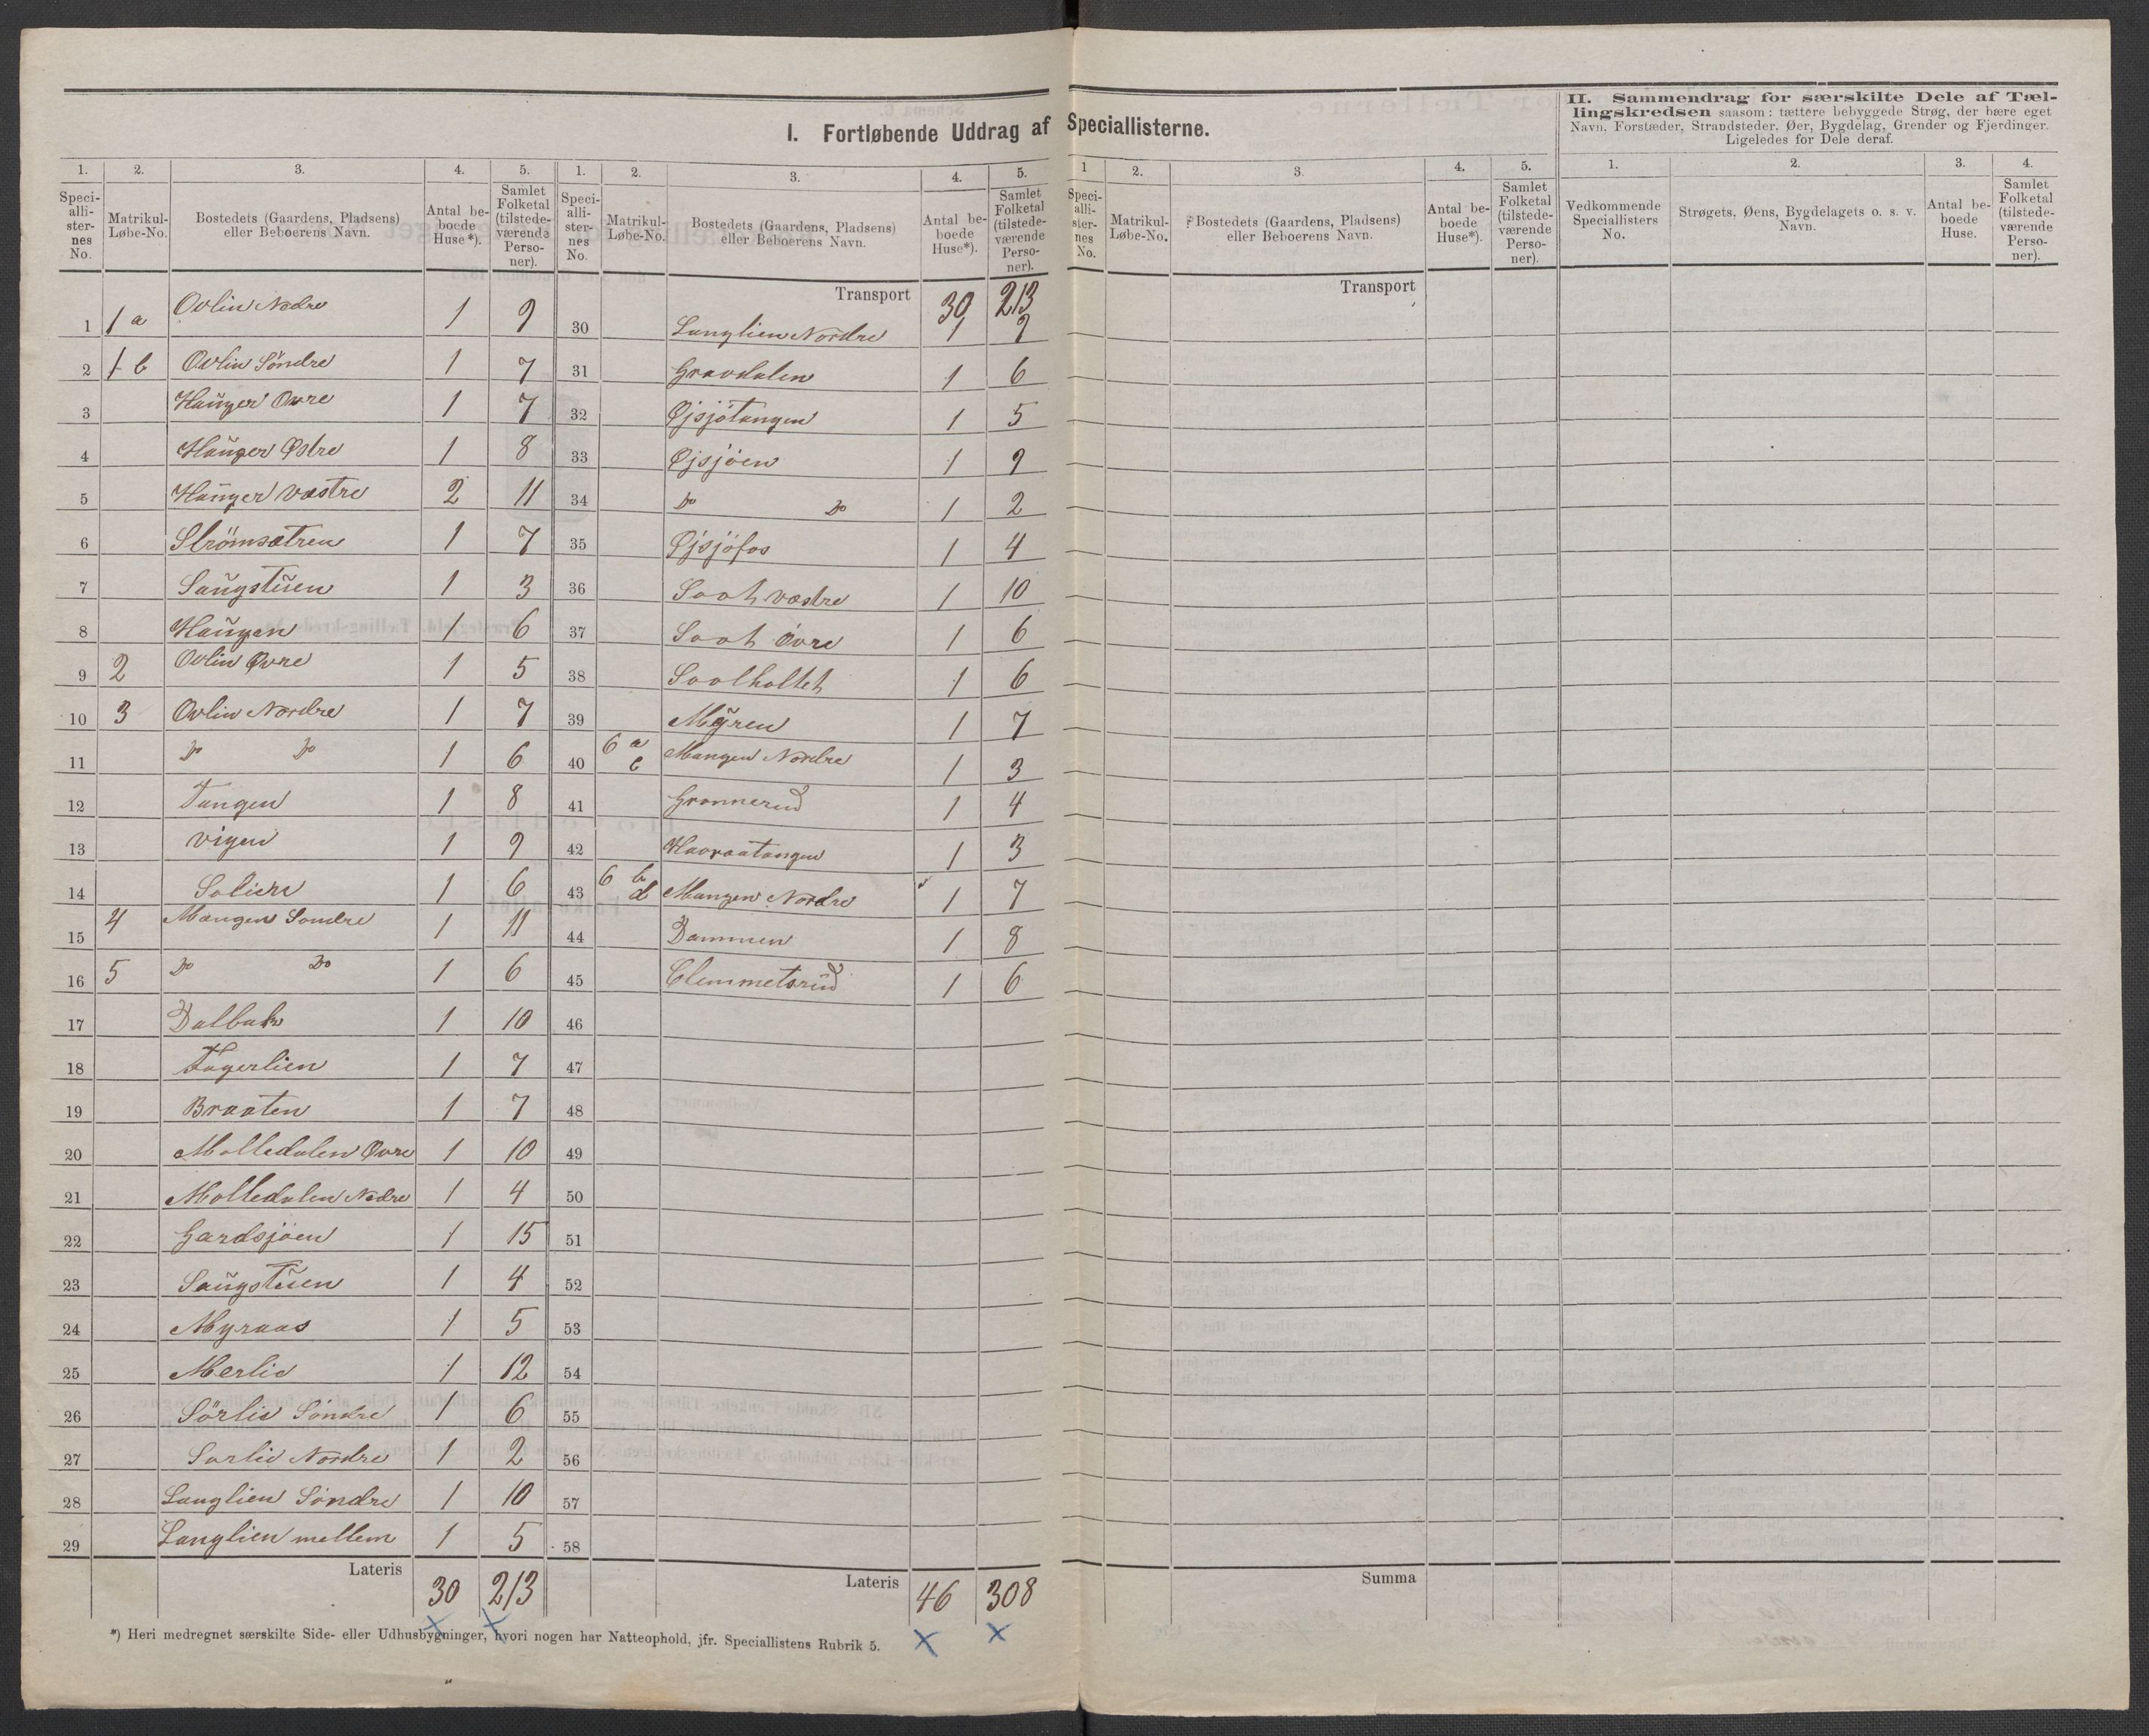 I. Fortløbende Uddrag af Speciallisterne.
1. 2. 3. 4. 5.
Speciallisternes No. Matrikul-Løbe-No. Bostedets (Gaardens, Pladsens) eller Beboerens Navn. Antal beboede Huse*). Samlet Folketal (tilstedeværende Personer).
1 1a Ovlin Nedre 1 9
2 1b Ovlin Söndre 1 7
3 Hauger Øvre 1 7
4 Hauger Østre 1 8
5 Hauger væstre 2 11
6 Strömsætren 1 7
7 Saugstuen 1 3
8 Haugen 1 6
9 2 Ovlin Øvre 1 5
10 3 Ovlin Nordre 1 7
11 Do Do 1 6
12 Tangen 1 8
13 vigen 1 9
14 Solien 1 6
15 4 Mangen Sondre 1 11
16 5 Do Do 1 6
17 Dalbak 1 10
18 Fagerlien 1 7
19 Braaten 1 7
20 Molledalen Øvre 1 10
21 Molledalen Nedre 1 4
22 Gardsjöen 1 15
23 Saugstuen 1 4
24 Myraas 1 5
25 Merlie 1 12
26 Sörlie Söndre 1 6
27 Sorlie Nordre 1 2
28 Langlien Söndre 1 10
29 Langlien mellem 1 5
Lateris 30 213
1. 2. 3. 4. 5.
Speciallisternes No. Matrikul-Løbe-No. Bostedets (Gaardens, Pladsens) eller Beboerens Navn. Antal beboede Huse*). Samlet Folketal (tilstedeværende Personer).
Transport 30 213
30 Langlien Nordre 1 9
31 Gravdalen 1 6
32 Øjsjötangen 1 5
33 Øjsjöen 1 9
34 Do Do 1 2
35 Øjsjöfos 1 4
36 Soot væstre 1 10
37 Soot Øvre 1 6
38 Sootholtet 1 6
39 Myren 1 7
40 6 a c Mangen Nordre 1 3
41 Gronnerud 1 4
42 1 3
43 6 b d Mangen Nordre 1 7
44 Dammen 1 8
45 Clemmetsrud 1 6
46
47
48
49
50
51
52
53
54
55
56
57
58
Lateris 46 308
*) Heri medregnet særskilte Side- eller Udhusbygninger, hvori nogen har Natteophold, jfr. Speciallistens Rubrik 5.
1 2. 3. 4. 5.
Speciallisternes No. Matrikul-Løbe-No. Bostedets (Gaardens, Pladsens) eller Beboerens Navn. Antal beboede Huse*). Samlet Folketal (tilstedeværende Personer).
Transport
Summa
II. Sammendrag for særskilte Dele af Tællingskredsen saasom: tættere bebyggede Strøg, der bære eget
Navn, Forstæder, Strandsteder, Øer, Bygdelag, Grender og Fjerdinger.
Ligeledes for Dele deraf.
1. 2. 3. 4.
Vedkommende Speciallisters No. Strøgets, Øens, Bygdelagets o. s. v. Navn. Antal beboede Huse. Samlet Folketal (tilstedeværende Personer).